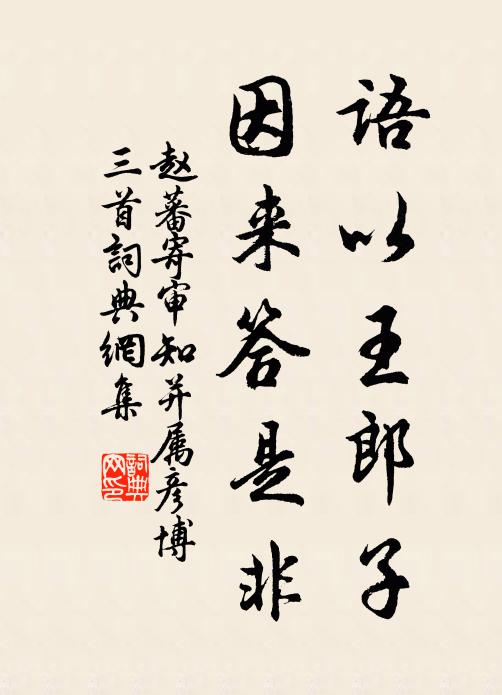 语以王郎子
因来答是非
赵蕃寄审知并属彦博
三首詞典網集
詞典网印